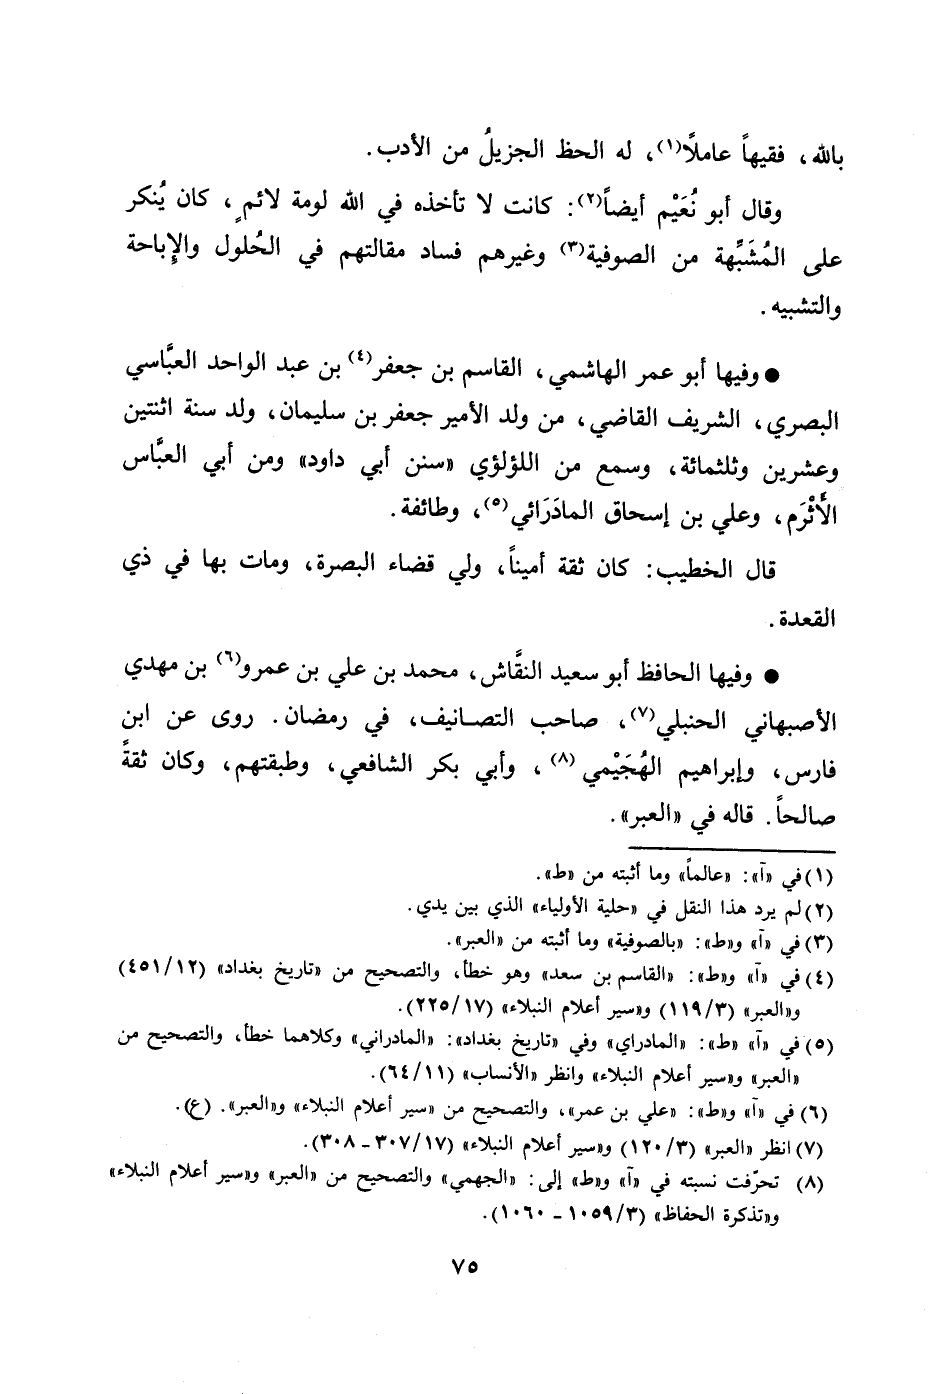 بالله، فقيهاً عاملًا(١)، له الحظ الجزيلُ من الأدب.
وقال أبو نُعَيْم أيضاً(٢): كانت لا تأخذه في الله لومة لائمٍ، كان يُنكر
على المُشَبِّهة من الصوفية(٣) وغيرهم فساد مقالتهم في الحُلول والإِباحة
والتشبيه.
● وفيها أبو عمر الهاشمي، القاسم بن جعفر(٤) بن عبد الواحد العبَّاسي
البصري، الشريف القاضي، من ولد الأمير جعفر بن سليمان، ولد سنة اثنتين
وعشرين وثلثمائة، وسمع من اللؤلؤي «سنن أبي داود» ومن أبي العبَّاس
الأَثْرَم، وعلي بن إسحاق المادَرَائي(٥)، وطائفة.
قال الخطيب: كان ثقة أميناً، ولي قضاء البصرة، ومات بها في ذي
القعدة.
● وفيها الحافظ أبو سعيد النقَّاش، محمد بن علي بن عمرو(٦) بن مهدي
الأصبهاني الحنبلي(٧)، صاحب التصانيف، في رمضان. روى عن ابن
فارس، وإبراهيم الهُجَيْمي(٨)، وأبي بكر الشافعي، وطبقتهم، وكان ثقةً
صالحاً. قاله في «العبر».
(١) في «آ»: «عالماً» وما أثبته من «ط».
(٢) لم يرد هذا النقل في «حلية الأولياء» الذي بين يدي.
(٣) في «آ» و«ط»: «بالصوفية» وما أثبته من «العبر».
(٤) في «آ» و«ط»: «القاسم بن سعد» وهو خطأ، والتصحيح من «تاريخ بغداد» (٤٥١/١٢)
و«العبر» (١١٩/٣) و«سير أعلام النبلاء» (٢٢٥/١٧).
(٥) في «آ» «ط»: «المادراي» وفي «تاريخ بغداد»: «المادراني» وكلاهما خطأ، والتصحيح من
«العبر» و«سير أعلام النبلاء» وانظر «الأنساب» (٦٤/١١).
(٦) في «آ» و«ط»: «علي بن عمر»، والتصحيح من «سير أعلام النبلاء» و«العبر». (ع).
(٧) انظر «العبر» (١٢٠/٣) و«سير أعلام النبلاء» (٣٠٧/١٧ - ٣٠٨).
(٨) تحرّفت نسبته في «آ» و«ط» إلى: «الجهمي» والتصحيح من «العبر» و«سير أعلام النبلاء»
و«تذكرة الحفاظ» (١٠٥٩/٣ - ١٠٦٠).
٧٥